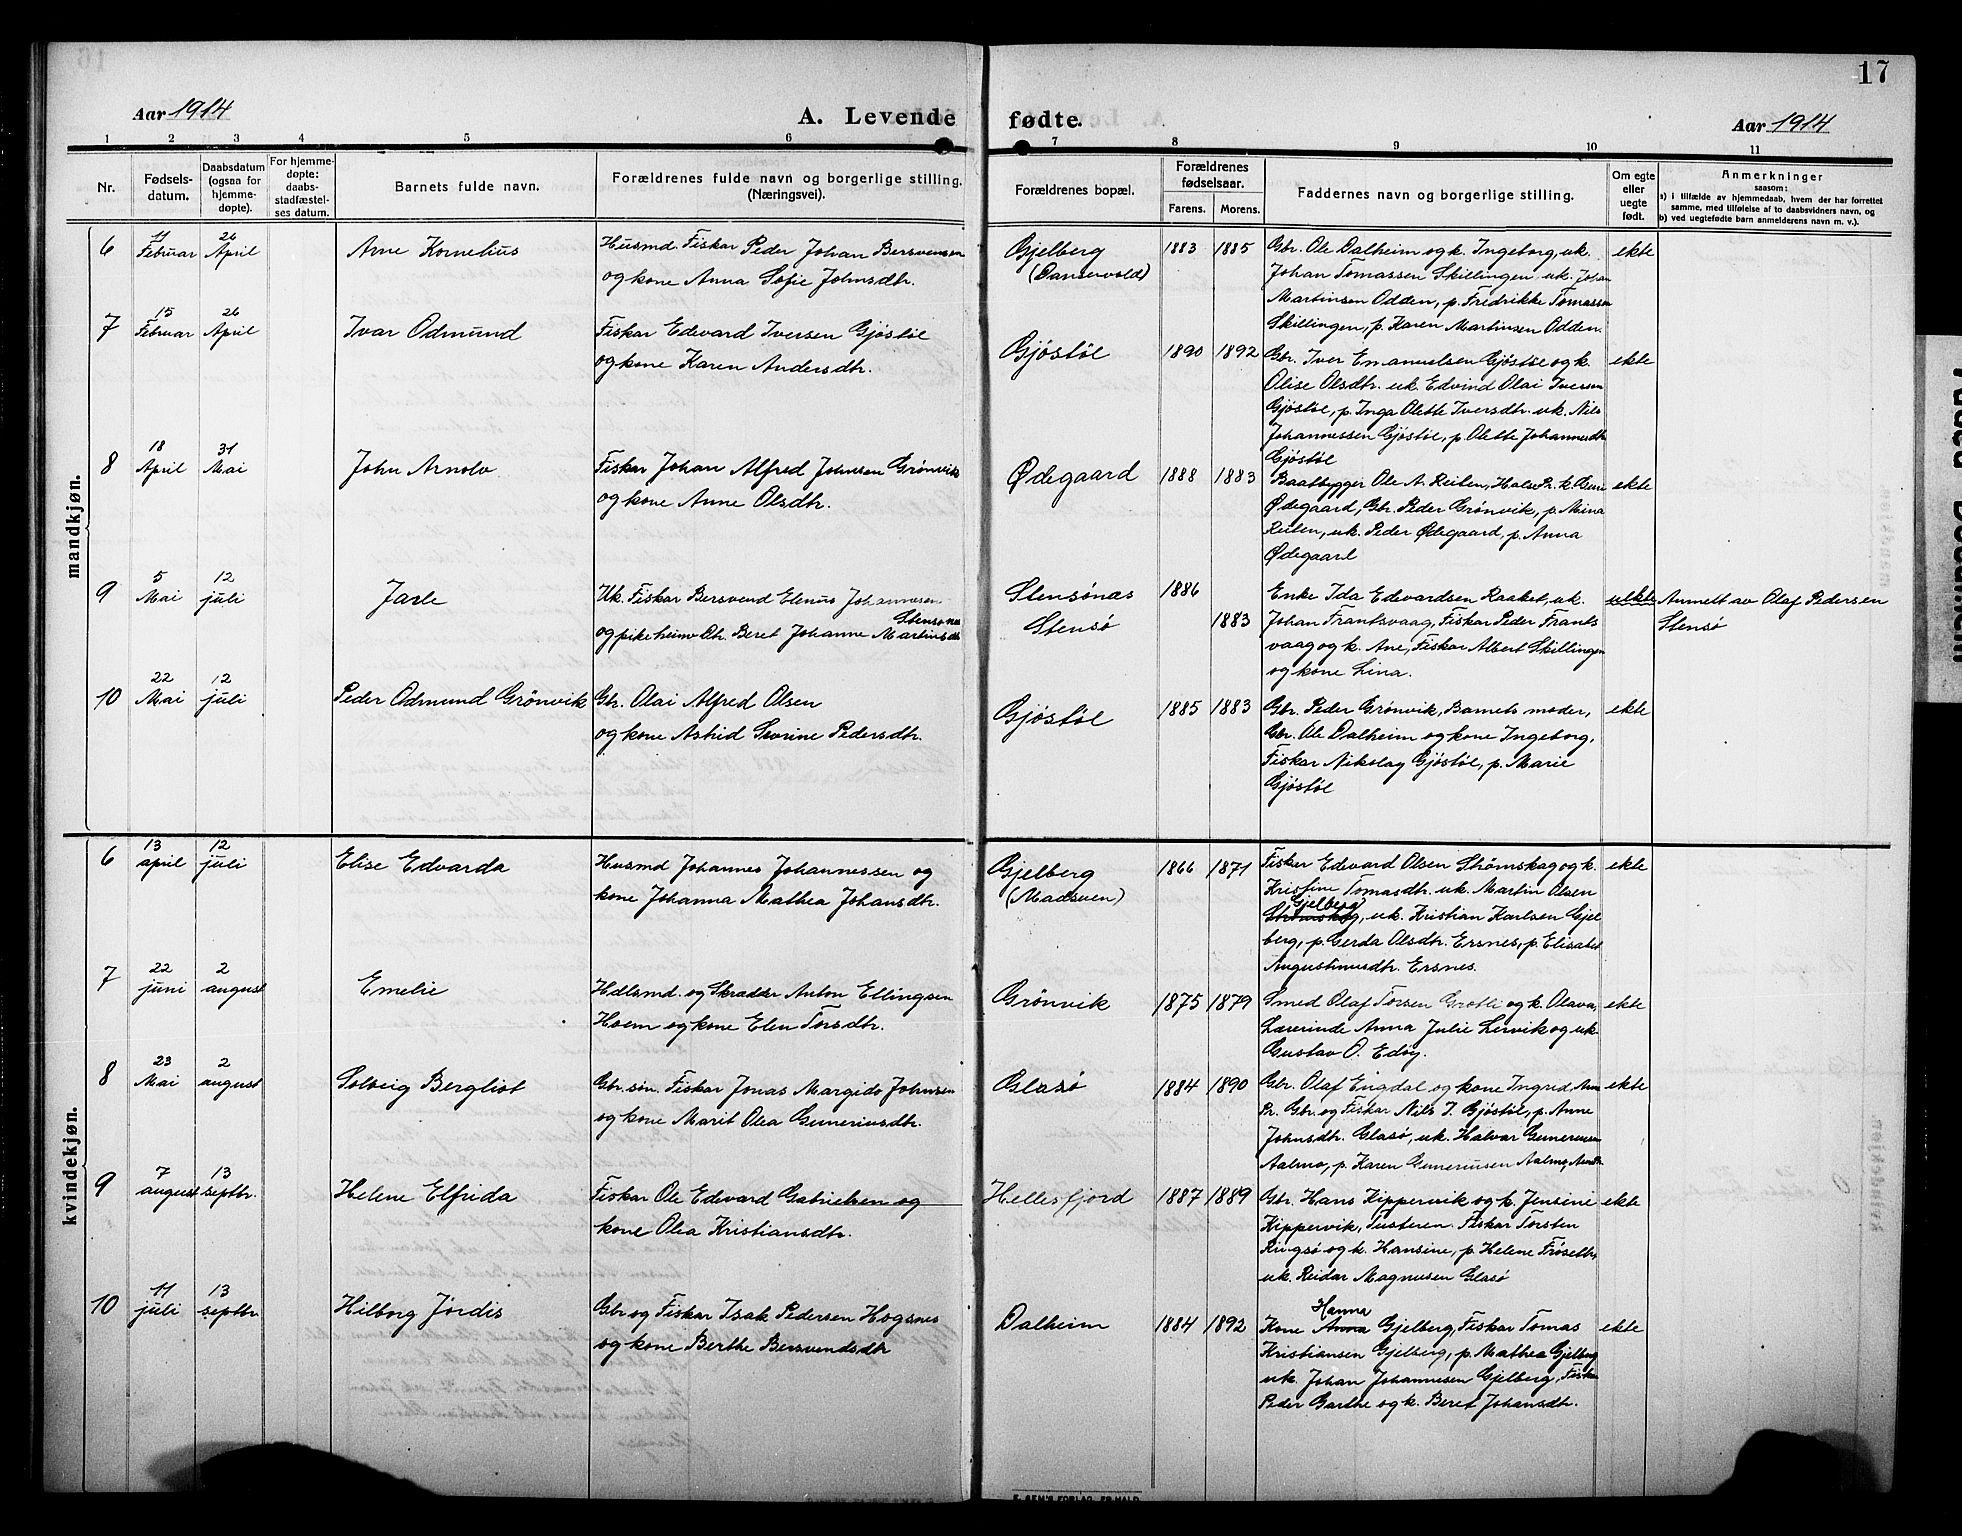 17
Aar 1914
A. Levende fødte.
Aar 1914
1 2 3 4 5 6 7 8 9 10 11
Nr.
Fødsels-
datum.
Daabsdatum
(ogsaa for
hjemme-
døpte).
For hjemme-
døpte:
daabs-
stadfæstel-
ses datum.
Barnets fulde navn.
Forældrenes fulde navn og borgerlige stilling.
(Næringsvei).
Forældrenes bopæl.
Forældrenes
fødselsaar.
Farens. Morens.
Faddernes navn og borgerlige stilling.
Om egte
eller
uegte
født.
Anmerkninger
saasom:
a) i tilfælde av hjemmedaab, hvem der har forrettet
samme, med tilføielse af to daabsvidners navn, og
b) ved uegtefødte barn anmelderens navn m. v.).
mandkjøn.
6
11 Februar
26 April
Arne Kornelius
Husmd. Fiskar Peder Johan Bersvensen
og kone Anna Sofie Johnsdtr.
Gjelberg
(Dansevold)
1883 1885
Gbr. Ole Dalheim og k. Ingeborg, uk.
Johan Tomassen Skillingen, uk. Johan
Martinsen Odden, p. Fredrikke Tomassen
Skillingen, p. Karen Martinsen Odden.
ekte
7
15 Februar
26 April
Ivar Odmund
Fiskar Edvard Iversen Gjøstøl
og kone Karen Andersdtr.
Gjøstøl
1890 1892
Gbr. Iver Emanuelsen Gjøstøl og k.
Olise Olsdtr. uk. Edvind Olai Iversen
Gjøstøl, p. Inga Olette Iversdtr. uk. Nils
Johannessen Gjøstøl, p. Olette Johannesdtr
Gjøstøl
ekte
8
18 April
31 Mai
John Arnold
Fiskar Johan Alfred Johnsen Grønvik
og kone Anne Olsdtr.
Ødegaard
1888 1883
Baatbygger Ole A. Reilen, Halse Pr. k. Guri
Ødegaard, Gbr. Peder Grønvik, p. Mina
Reilen, uk. Peder Ødegaard, p. Anna
Ødegaard
ekte
9
5 Mai
12 juli
Jarle
Uk. Fiskar Bersvend Elenus Johannesen
Stensønes
og pike heimv. Dtr. Beret Johanne Martinsdtr
Stensønes
Stensø
1886
1883
Enke Ida Edvardsen Raaket, uk.
Johan Frantsvaag, Fiskar Peder Frants
vaag og k. Ane, Fiskar Albert Skillingen
og kone Lina.
uekte
Anmelt av Olaf Pedersen
Stensø
10
22 Mai
12 juli
Peder Odmund Grønvik
Gbr. Olai Alfred Olsen
og kone Astrid Sevrine Pedersdtr.
Gjøstøl
1885 1883
Gbr. Peder Grønvik, Barnets moder,
Gbr. Ole Dalheim og kone Ingeborg,
Fiskar Nikolay Gjøstøl, p. Marie
Gjøstøl
ekte
kvindekjøn.
6
13 april
12 juli
Elise Edvarda
Husmd Johannes Johannessen og
kone Johanna Mathea Johansdtr.
Gjelberg
(Madsven)
1866 1871
Fisker Edvard Olsen Strømskag og k.
Kristine Tomasdtr. uk. Martin Olsen
Gjelberg
Strømskag, uk. Kristian Karlsen Gjel
berg, p. Gerda Olsdtr. Ersnes, p. Elisabet
Augustinusdtr. Ersnes.
ekte
7
22 juni
2 august
Emelie
Hdlsmd. og Skradder Anton Ellingsen
Hoem og kone Elen Torsdtr.
Grønvik
1875 1879
Smed Olaf Torsen Grøtli og k. Olava,
Lærerinde Anna Julie Lervik og uk.
Gustav O. Edøy.
ekte
8
23 Mai
2 august
Solveig Bergliot
Gbr. søn. Fiskar Jonas Margido Johnsen
og kone Marit Olea Gunneriusdtr.
Glasø
1884 1890
Gbr. Olaf Engdal og kone Ingrid Aure
Pr. Gbr. og Fiskar Nils J. Gjøstøl, p. Anne
Johnsdtr. Glasø, uk. Halvar Guneriusen
Aalmo, p. Karen Guneriusen Aalmo,
ekte
9
7 august
13 septbr.
Helene Elfrida
Fiskar Ole Edvard Gabrielsen og
kone Olea Kristiansdtr.
Hellesfjord
1887 1889
Gbr. Hans Kippervik og k. Jensine
Kippervik, Tusteren. Fiskar Torsten
Ringsø og k. Hansine, p. Helene Frøseth,
uk. Reidar Magnusen Glasø
ekte
10
11 juli
13 septbr
Hilborg Jørdis
Gbr og Fiskar Isak Pedersen Hogsnes
og kone Berthe Bersvendsdtr
Dalheim
1884 1892
Hanna
Kone Anna Gjelberg, Fiskar Tomas
Kristiansen Gjelberg, p. Mathea Gjelberg
uk. Johan Johannesen Gjelberg, Fiskar
Peder Garthe og k. Beret Johansdtr.
ekte